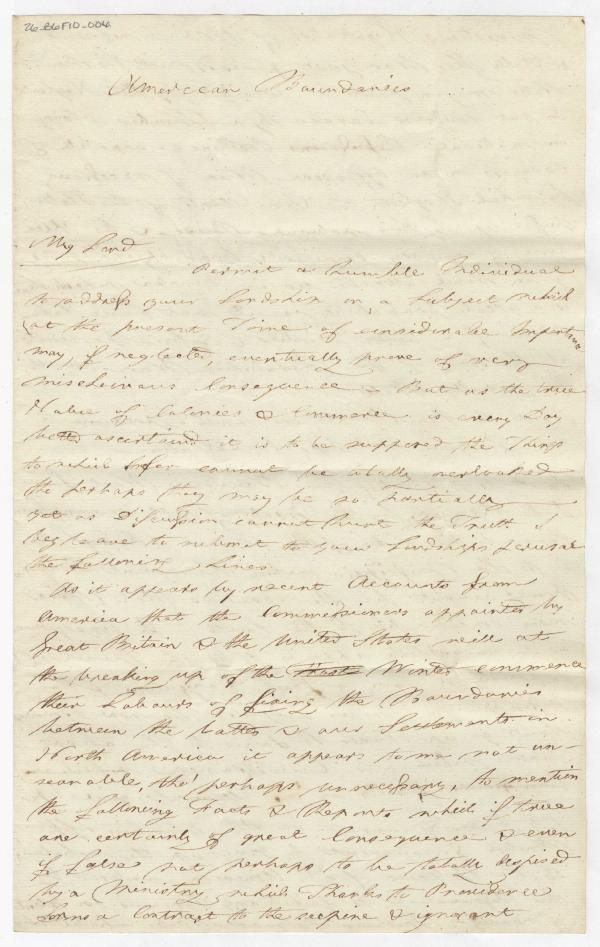 26_B6F10_004
American Boundaries
My Lord
Permit a humble Individual
to address your Lordship on a Subject which
at the present Time of considerable Importance
may, if neglected, eventually prove of very
mischievous Consequence - But as the true
Value of Colonies & Commerce is every Day
better ascertained it is to be supposed the Things
to which I refer cannot be totally overlooked
tho perhaps they may be so partially
yet as Discussion cannot hurt the Truth I
beg leave to submit to your Lordships perusal
the following Lines.
As it appears by recent Accounts from
America that the Commissioners appointed by
Great Britain & the United States will at
the breaking up of the Winter commence
their Labours of fixing the Boundaries
between the latter & our Settlements in
North America it appears to me not un-
seasonable, tho' perhaps unnecessary, to mention
the following Facts & Reports which if true
are certainly of great Consequence & even
if false not perhaps to be totally despised
by a Ministry which Thanks to Providence
forms a Contrast to the supine & ignorant